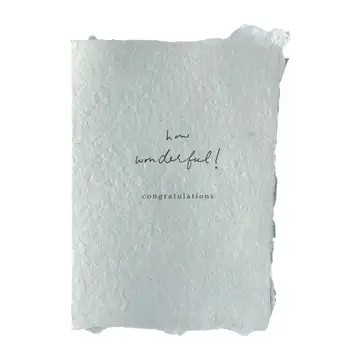 how
wonderful!
congratulations